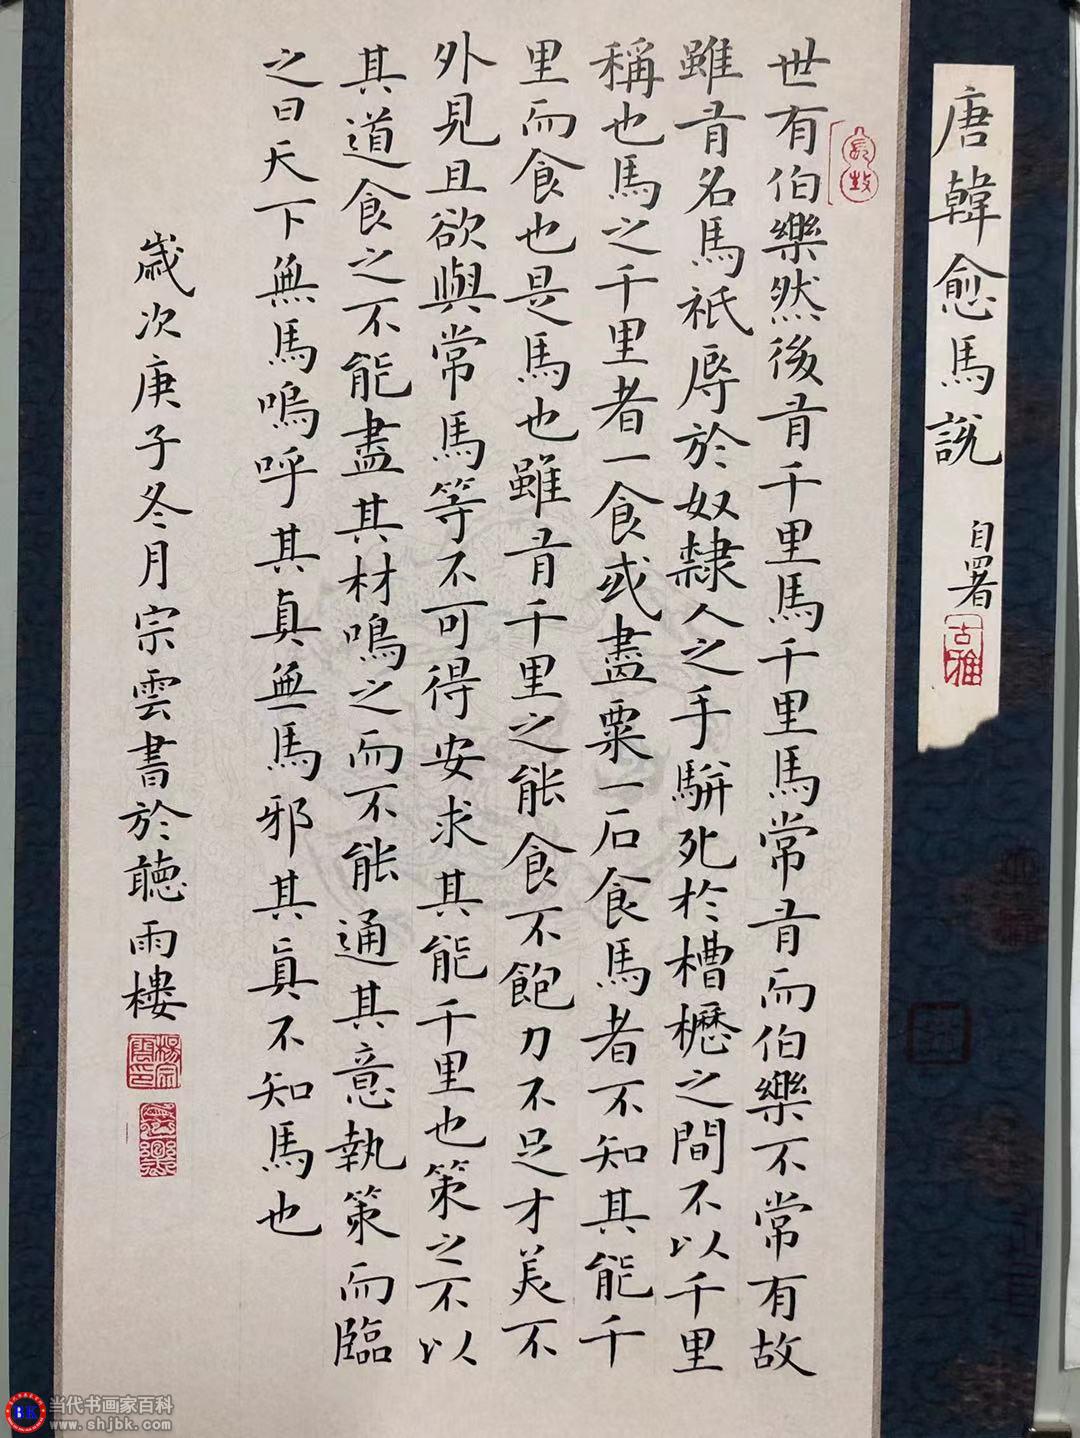 唐韓愈馬說
自署
古雅
世有伯樂然後有千里馬千里馬常有而伯樂不常有故
雖有名馬祇辱於奴隸人之手駢死於槽櫪之間不以千里
稱也馬之千里者一食或盡粟一石食馬者不知其能千
里而食也是馬也雖有千里之能食不飽力不足才美不
外見且欲與常馬等不可得安求其能千里也策之不以
其道食之不能盡其材鳴之而不能通其意執策而臨
之曰天下無馬嗚呼其真無馬邪其真不知馬也
歲次庚子冬月宗雲書於聽雨樓
楊宗雲印
当代书画家百科
www.shjbk.com